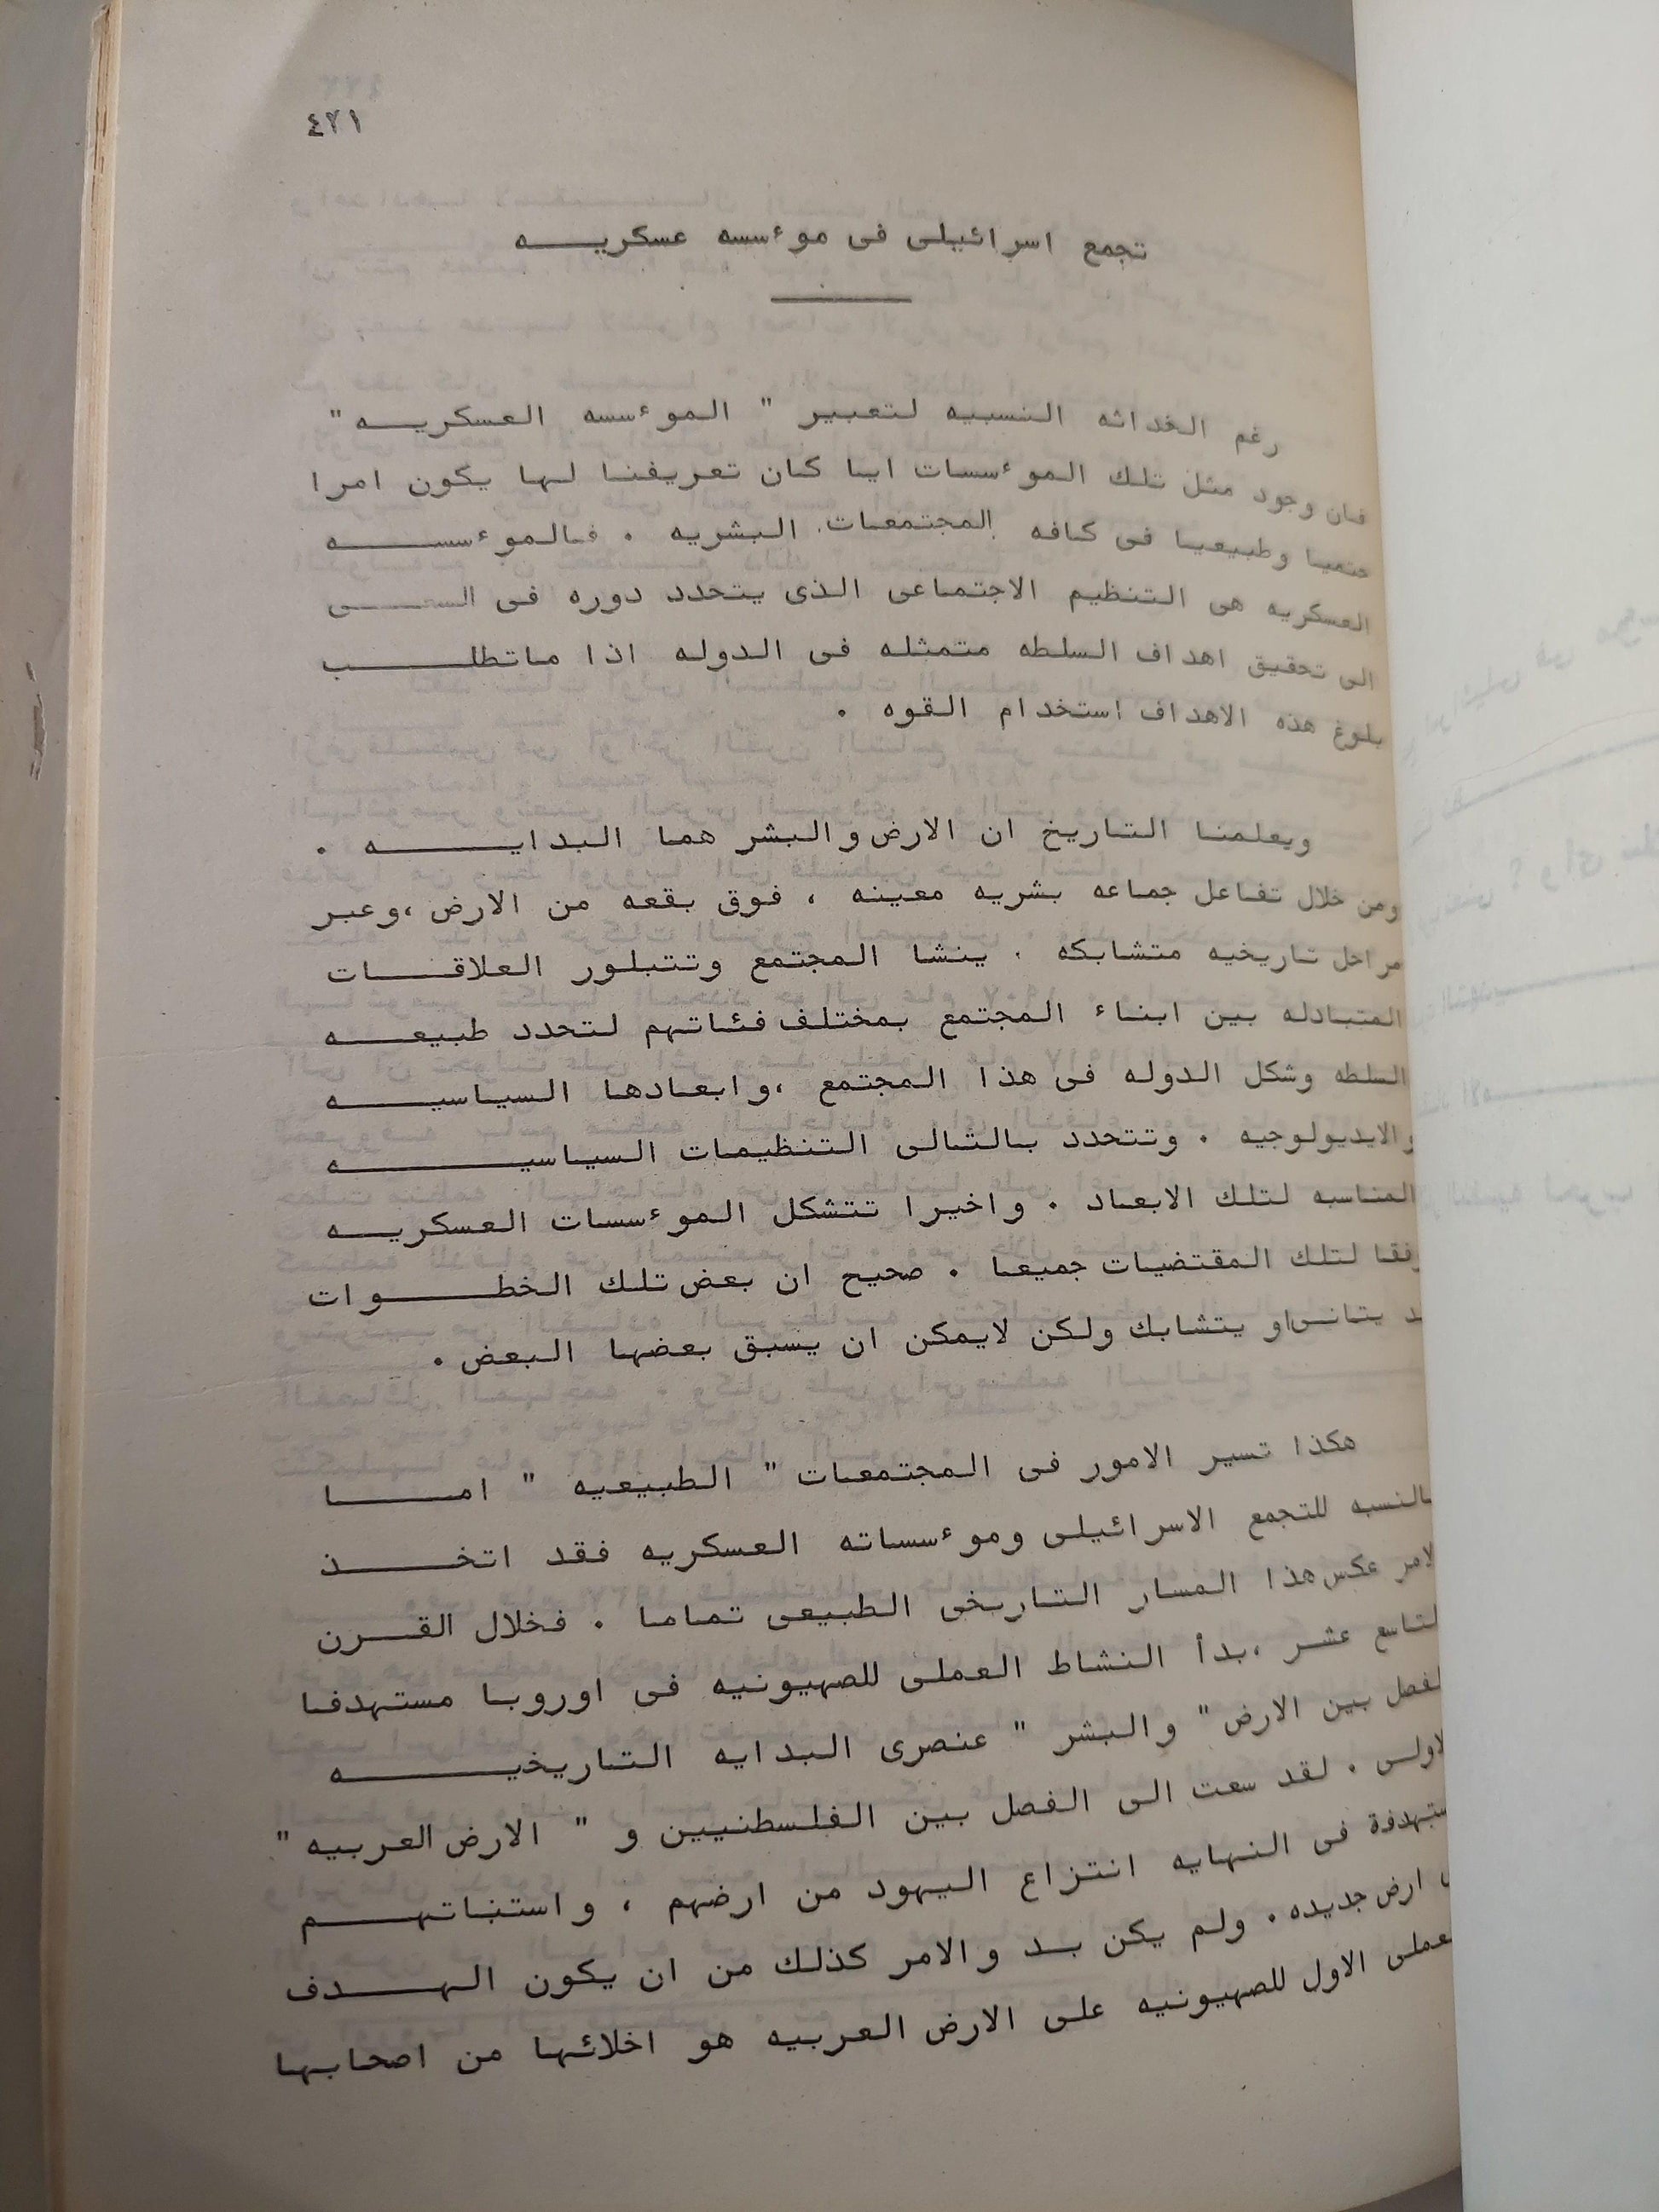 ٤٢١
تجمع اسرائيلى فى موءسسه عسكريه
رغم الحداثه النسبيه لتعبير " الموءسسه العسكريه "
فان وجود مثل تلك الموءسسات ايا كان تعريفنا لها يكون امرا
حتميا وطبيعيا فى كافه المجتمعات البشريه . فالموءسسه
العسكريه هى التنظيم الاجتماعى الذى يتحدد دوره فى السعى
الى تحقيق اهداف السلطه متمثله فى الدوله اذا ماتطلب
بلوغ هذه الاهداف استخدام القوه .
ويعلمنا التاريخ ان الارض والبشر هما البدايه .
ومن خلال تفاعل جماعه بشريه معينه ، فوق بقعه من الارض ،وعبر
مراحل تاريخيه متشابكه . ينشا المجتمع وتتبلور العلاقات
المتبادله بين ابناء المجتمع بمختلف فئاتهم لتحدد طبيعه
السلطه وشكل الدوله فى هذا المجتمع ،وابعادها السياسيه
والايديولوجيه . وتتحدد بالتالى التنظيمات السياسيه
المناسبه لتلك الابعاد . واخيرا تتشكل الموءسسات العسكريه
وفقا لتلك المقتضيات جميعا . صحيح ان بعض تلك الخطوات
او يتشابك ولكن لايمكن ان يسبق بعضها البعض .
هكذا تسير الامور فى المجتمعات " الطبيعيه " اما
بالنسبه للتجمع الاسرائيلى وموءسساته العسكريه فقد اتخذ
لامر عكس هذا المسار التاريخى الطبيعى تماما . فخلال القرن
لتاسع عشر ،بدأ النشاط العملى للصهيونيه فى اوروبا مستهدفا
لفصل بين الارض " والبشر " عنصرى البدايه التاريخيه
لاولى . لقد سعت الى الفصل بين الفلسطنيين و " الارض العربيه "
ستهدفة فى النهايه انتزاع اليهود من ارضهم ، واستنباتهم
ارض جديده . ولم يكن بد والامر كذلك من ان يكون الهدف
لعملى الاول للصهيونيه على الارض العربيه هو اخلائها من اصحابها